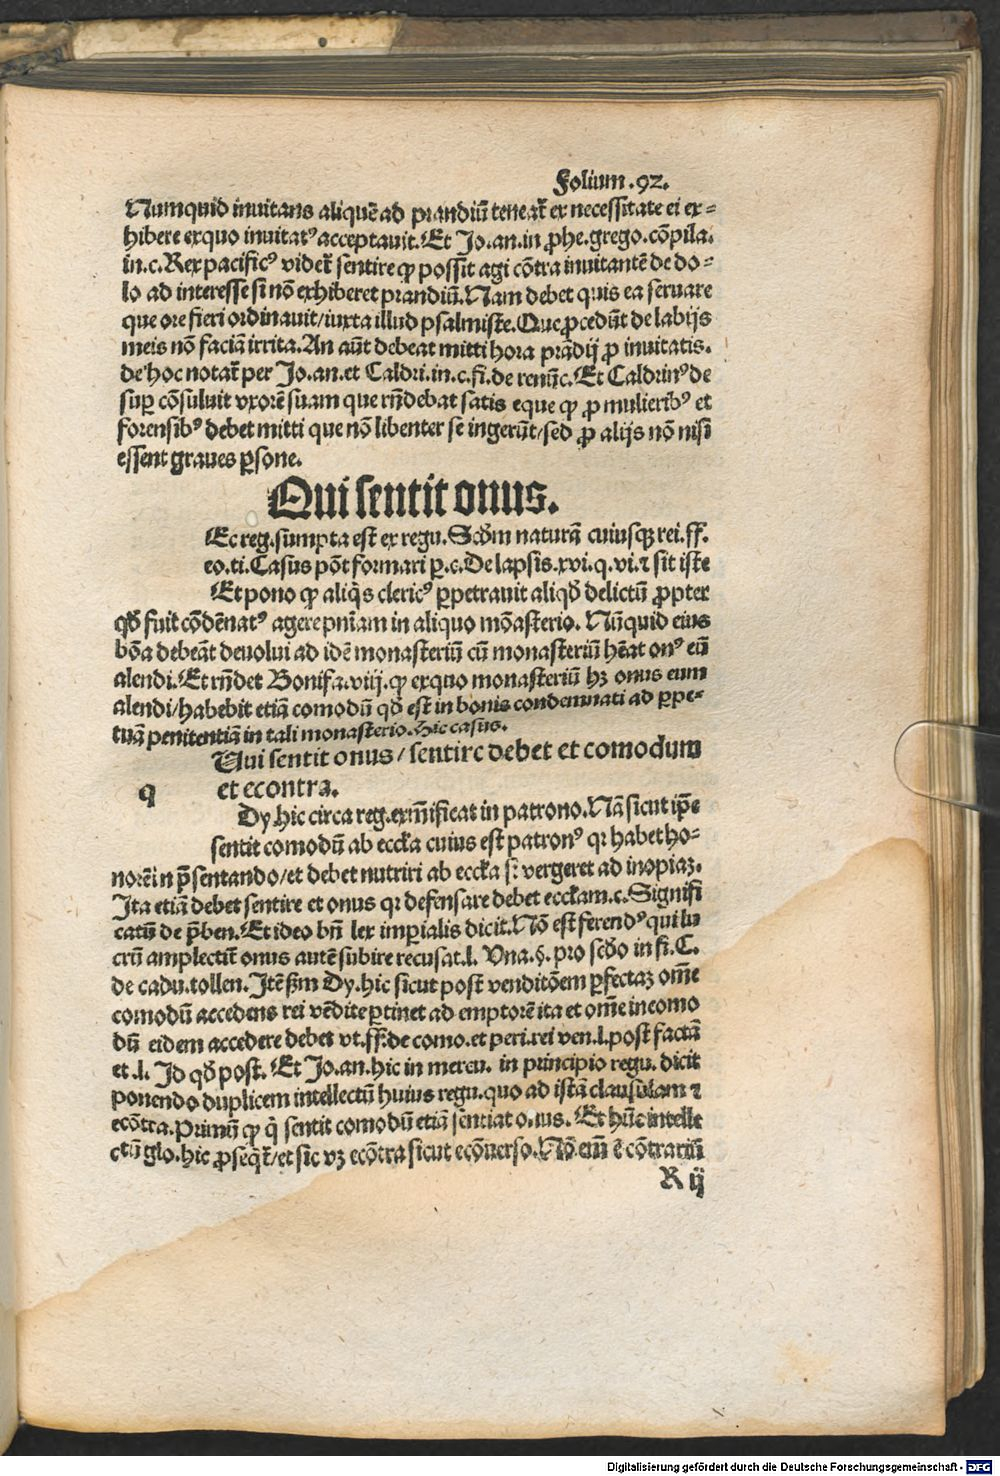 Folium .92.
Numquid inuitans aliquē ad prandiū teneat᷑ ex necessitate ei ex⸗
hibere exquo inuitatꝰ acceptauit. Et Jo. an. in ꝓhe. grego. cōpila.
in. c. Rex pacificꝰ videt᷑ sentire ꝙ possit agi cōtra inuitantē de do⸗
lo ad interesse si nō exhiberet prandiū. Nam debet quis ea seruare
que ore fieri ordinauit / iuxta illud psalmiste. Que ꝓcedūt de labijs
meis nō faciā irrita. An aūt debeat mitti hora prādij ꝓ inuitatis.
de hoc notat᷑ per Jo. an. et Caldri. in. c. fi. de renūc. Et Caldrinꝰ de
suꝑ cōsuluit vxorē suam que rn̄debat satis eque ꝙ ꝓ mulieribꝰ et
forensibꝰ debet mitti que nō libenter se ingerūt / sed ꝓ alijs nō nisi
essent graues ꝑsone.
Qui sentit onus.
Ec reg. sumpta est ex regu. Scd̄m naturā cuiusqꝫ rei. ff.
eo. ti. Casus pōt formari ꝑ. c. De lapsis. xvi. q. vi. ⁊ sit iste
Et pono ꝙ aliq̄s clericꝰ ꝑpetrauit aliqd̄ delictū ꝓpter
qd̄ fuit cōdēnatꝰ agere pn̄iam in aliquo mōasterio. Nūquid eius
bōa debeāt deuolui ad idē monasteriū cū monasteriū hēat onꝰ eū
alendi. Et rn̄det Bonifa. viij. ꝙ exquo monasteriū hꝫ onus eum
alendi / habebit etiā comodū qd̄ est in bonis condemnati ad ꝑpe⸗
tuā penitentiā in tali monasterio. Hic casus.
Qui sentit onus / sentire debet et comodum
q et econtra.
Dy. hic circa reg. exm̄ificat in patrono. Nā sicut ip̄e
sentit comodū ab eccl̄ia cuius est patronꝰ qꝛ habet ho⸗
norē in p̄sentando / et debet nutriri ab eccl̄ia si vergeret ad inopiaꝫ.
Ita etiā debet sentire et onus qꝛ defensare debet eccl̄iam. c. Signifi
catū de p̄ben. Et ideo bn̄ lex imꝑialis dicit. Nō est ferendꝰ qui lu
crū amplectit᷑ onus autē subire recusat. l. Vna. §. pro scd̄o in fi. C.
de cadu. tollen. Itē ẜm Dy. hic sicut post venditōem ꝑfectaꝫ om̄e
comodū accedens rei vēdite ꝑtinet ad emptorē ita et om̄e incomo
dū eidem accedere debet vt. ff. de como. et peri. rei ven. l. post factā
et. l. Id qd̄ post. Et Jo. an. hic in mercu. in principio regu. dicit
ponendo duplicem intellectū huius regu. quo ad istā clausulam ⁊
ecōtra. Primū ꝙ q̄ sentit comodū etiā sentiat onus. Et hūc intelle
ctū glo. hic ꝓseq̄t᷑ / et sic vꝫ ecōtra sicut ecōuerso. Nō em̄ ē cōtrariū
R ij
Digitalisierung gefördert durch die Deutsche Forschungsgemeinschaft - DFG